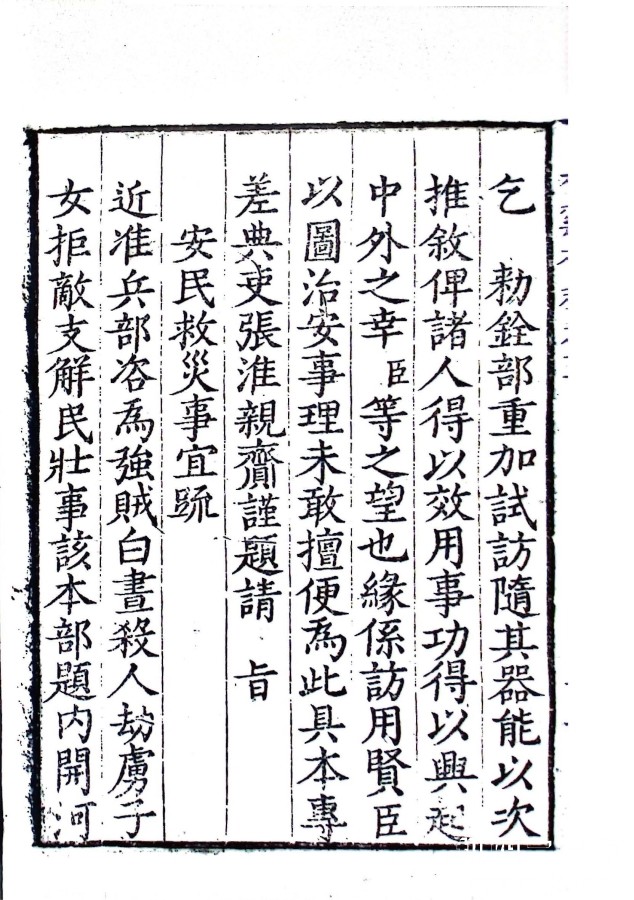 乞　勑銓部重加試訪隨其器能以次
推敘俾諸人得以效用事功得以興起
中外之幸臣等之望也緣係訪用賢臣
以圖治安事理未敢擅便為此具本專
差典吏張淮親齎謹題請　旨
安民救災事宜䟽
近准兵部咨為強賊白晝殺人劫虜子
女拒敵支解民壯事該本部題內開河